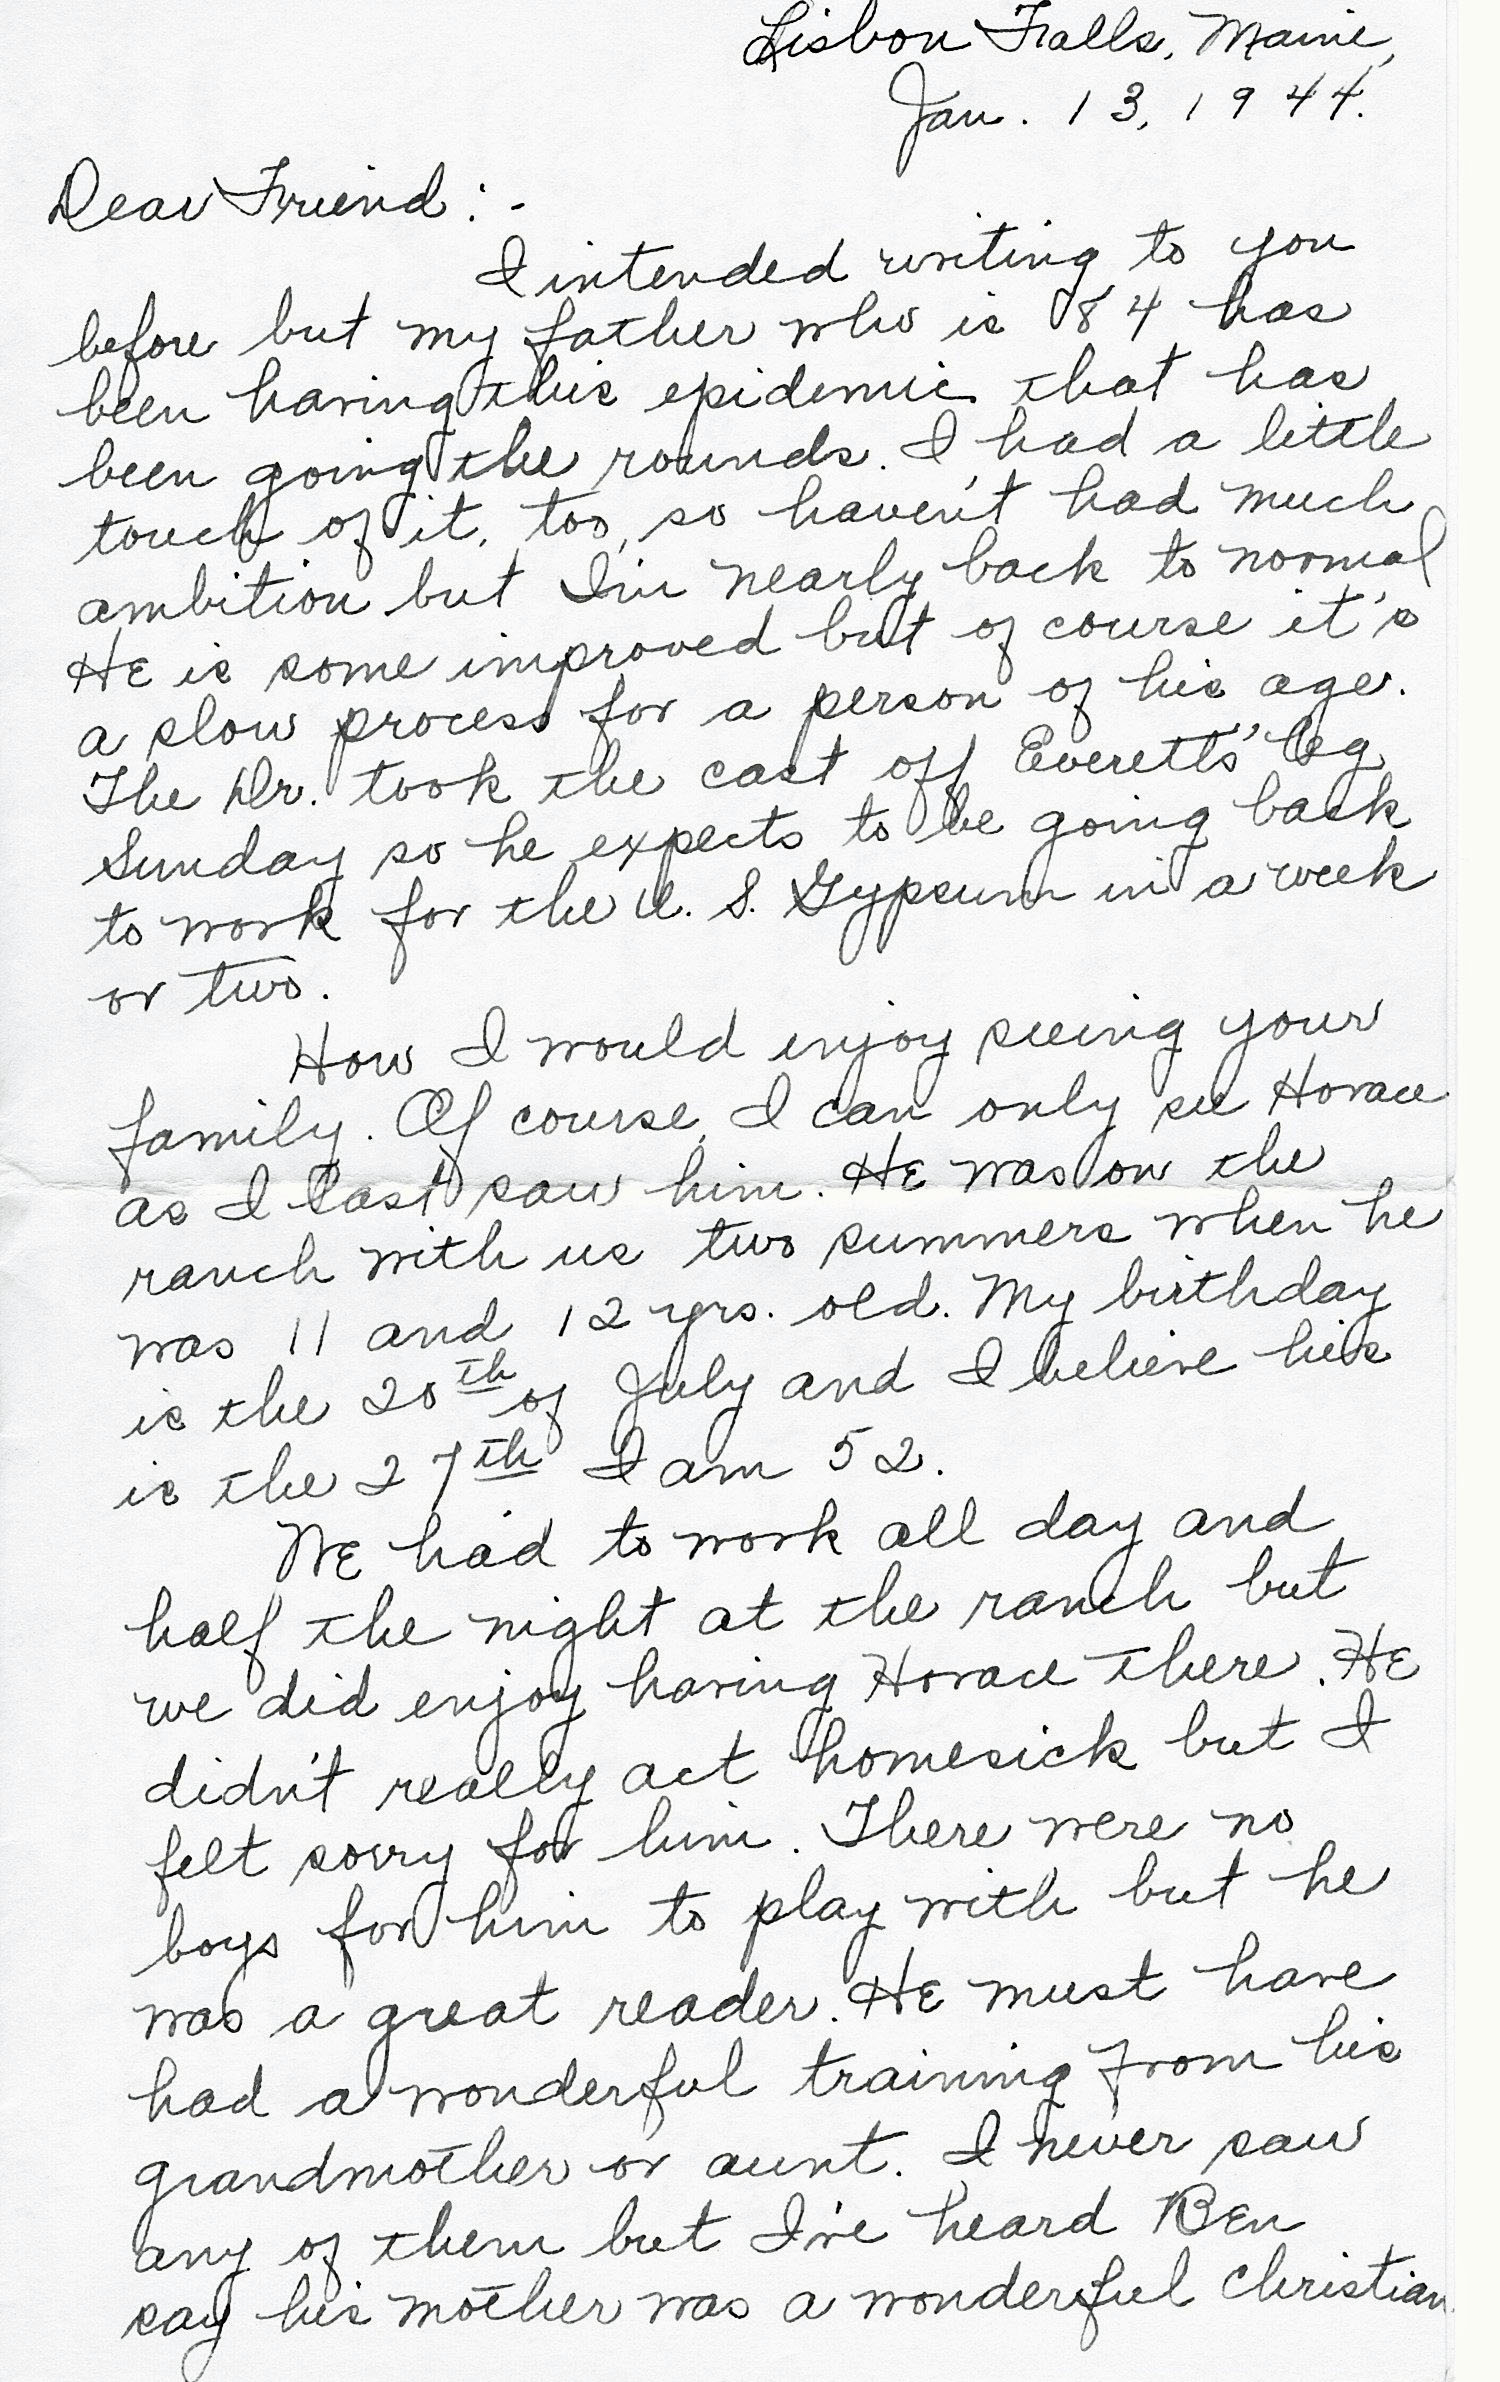 Lisbon Falls, Maine,
Jan. 13, 1944.
Dear Friend:-
I intended writing to you
before but my father who is 84 has
been having this epidemic that has
been going the rounds. I had a little
touch of it, too, so haven't had much
ambition but I'm nearly back to normal
He is some improved but of course it's
a slow process for a person of his age.
The Dr. took the cast off Everetts' leg
Sunday so he expects to be going back
to work for the U. S. Gypsum in a week
or two.
How I would enjoy seeing your
family. Of course, I can only see Horace
as I last saw him. He was on the
ranch with us two summers when he
was 11 and 12 yrs. old. My birthday
is the 20th of July and I believe his
is the 27th I am 52.
We had to work all day and
half the night at the ranch but
we did enjoy having Horace there. He
didn't really act homesick but I
felt sorry for him. There were no
boys for him to play with but he
was a great reader. He must have
had a wonderful training from his
grandmother or aunt. I never saw
any of them but I've heard Ben
say his mother was a wonderful Christian